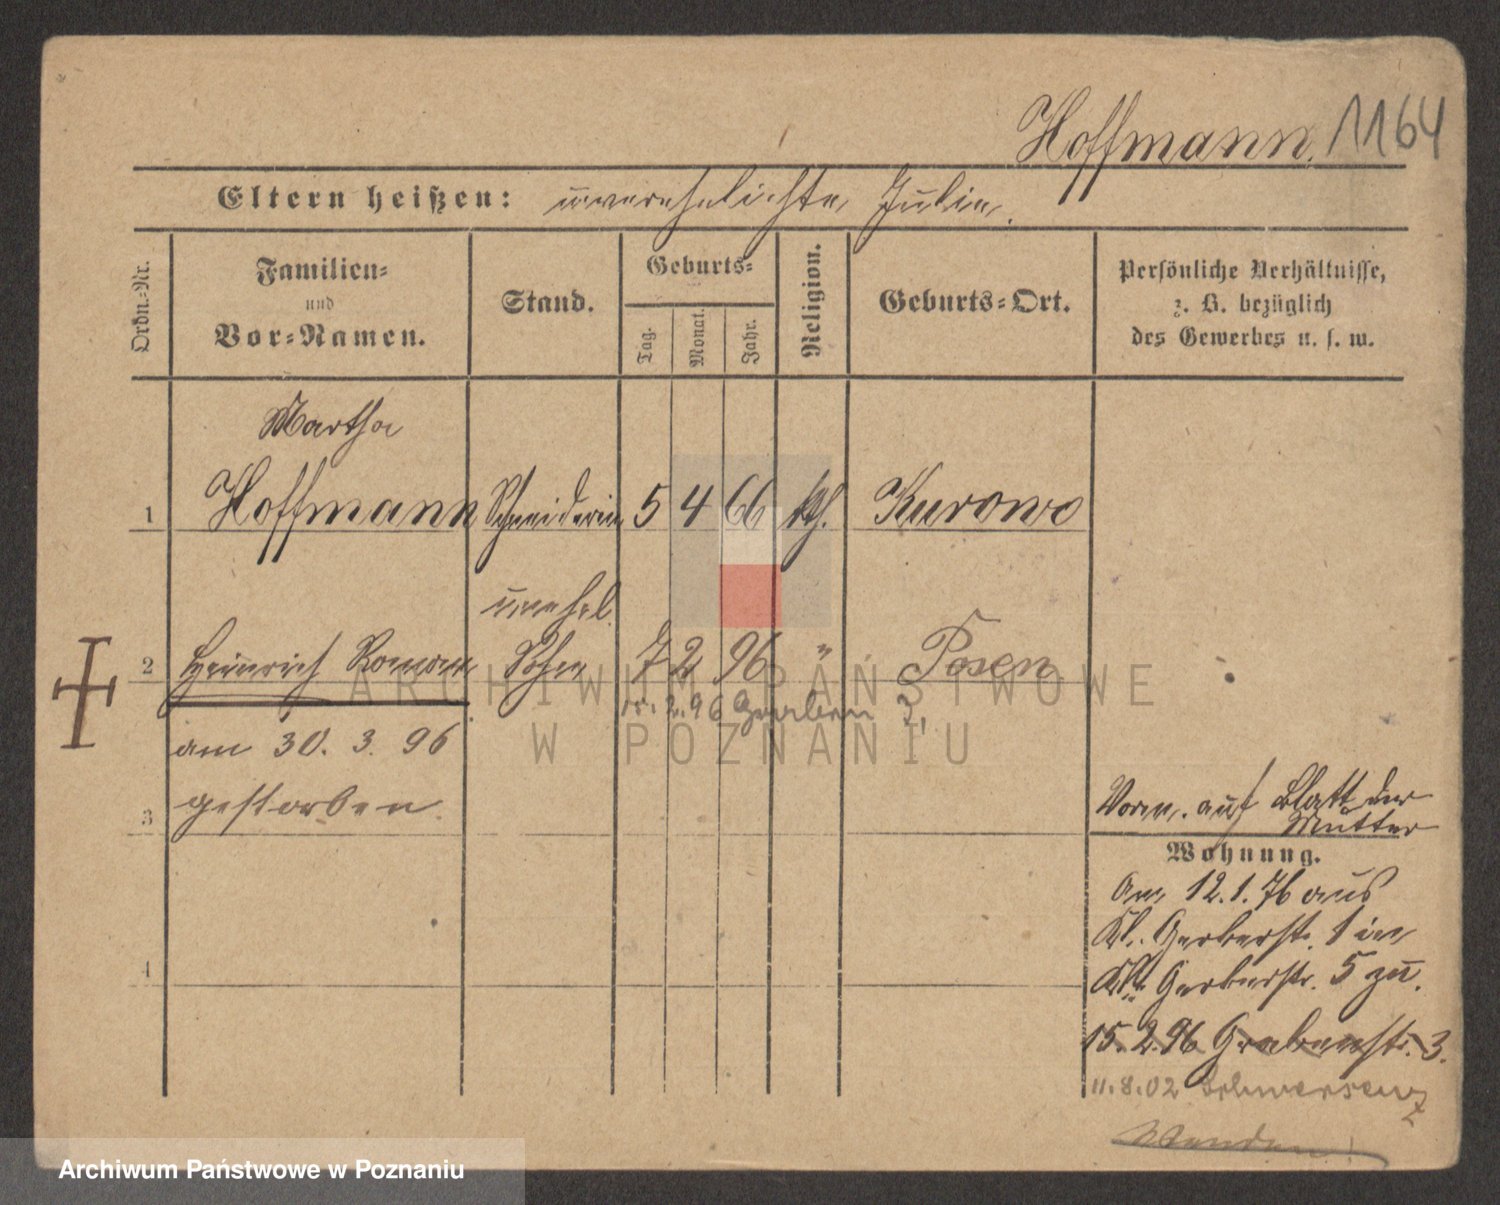 Hoffmann. 1164
Eltern heißen: unverehelichte Julie.
Ordn.=Nr.
Familien=
und
Vor=Namen.
Stand.
Geburts=
Tag.
Monat.
Jahr.
Religion.
Geburts=Ort.
Persönliche Verhältnisse,
z. B. bezüglich
des Gewerbes u. s. w.
Martha
1 Hoffmann Schneiderin 5 4 66 kth. Kurowo
unehel.
2 Heinrich Roman Sohn 7 2 96 " Posen
15. 2. 96 Graben 3,
am 30. 3. 96
3 gestorben.
4
Vorm. auf Blatt der
Mutter
Wohnung.
Am 12. 1. 76 aus
Kl. Gerberstr. 1 in
Kl. Gerberstr. 5 zu.
15. 2. 96 Grabenstr. 3.
11. 8. 02 Schwersenz
Wenden!
ARCHIWUM PAŃSTWOWE
W POZNANIU
Archiwum Państwowe w Poznaniu